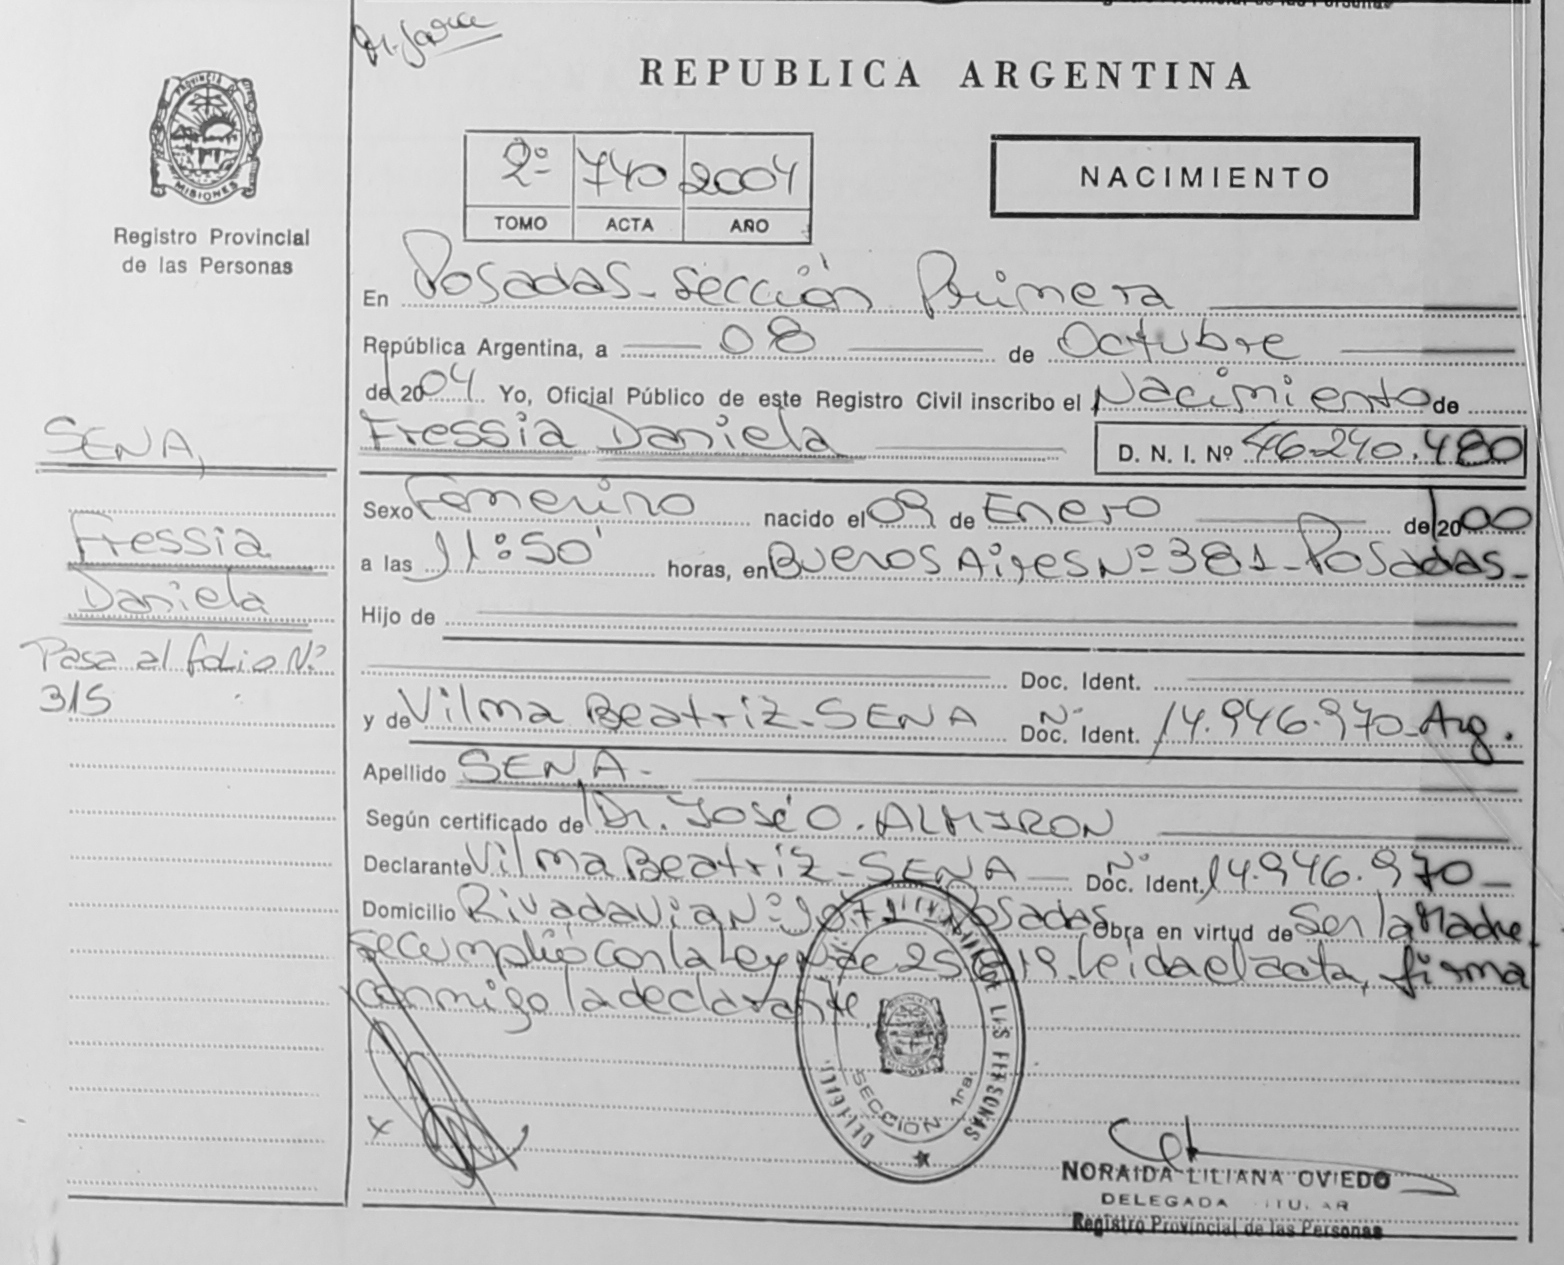 REPUBLICA ARGENTINA
PROVINCIA
MISIONES
Registro Provincial
de las Personas
2º 740 2004
TOMO ACTA AÑO
NACIMIENTO
En Posadas - Sección Primera
República Argentina, a 08 de Octubre
de 2004 Yo, Oficial Público de este Registro Civil inscribo el Nacimiento de
Fressia Daniela D. N. I. Nº 46.240.480
SENA,
Fressia
Daniela
Pasa al folio Nº
315
Sexo Femenino nacido el 09 de Enero de 2000
a las 11:50' horas, en Buenos Aires Nº 381 - Posadas -
Hijo de
Doc. Ident.
y de Vilma Beatriz - SENA Nº Doc. Ident. 14.946.970 - Arg.
Apellido SENA -
Según certificado de Dr. José O. ALMIRON
Declarante Vilma Beatriz - SENA Nº Doc. Ident. 14.946.970 -
Domicilio Rivadavia Nº Posadas Obra en virtud de Ser la Madre
se cumplió con la Ley leida el acta, firma
conmigo la declarante
DE LAS PERSONAS
SECCION 1ra.
x
NORAIDA LILIANA OVIEDO
DELEGADA TITULAR
Registro Provincial de las Personas